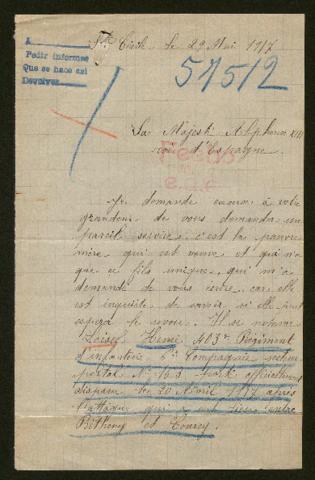 A
Pedir informes
Que se hace asi
Devolver
Ste Cécile le 29 Mai 1917
54512
Sa Majesté Alphonse XIII
roi d'Espagne.
Je demande encore à votre
grandeur de vous demander un
pareil service, c'est la pauvre
mère qui est veuve et qui n'a
que ce fils unique, qui m'a
demandé de vous écrire, car elle
est inquiète de savoir si elle peut
espérer le revoir. Il se nomme
Henri 403e Régiment
d'infanterie 6e Compagnie secteur
postal No 163 officiellement
disparu le 20 Avril 1917 après
l'attaque qui a eut lieu entre
Bétheny et Courcy.